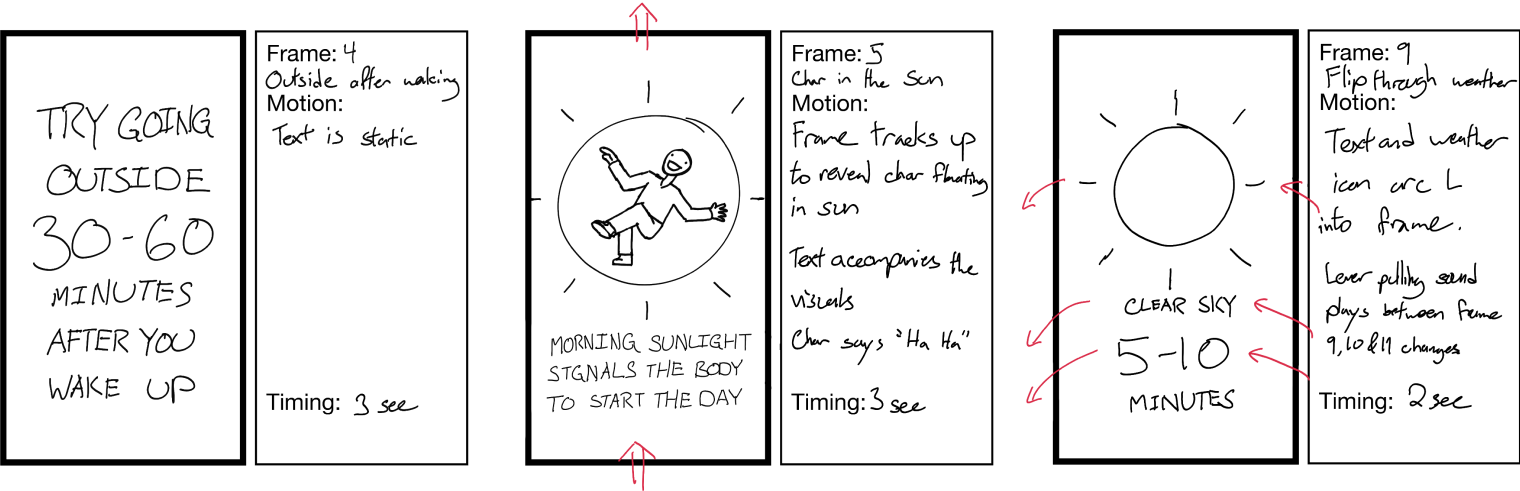 TRY GOING
OUTSIDE
30-60
MINUTES
AFTER YOU
WAKE UP
Frame: 4
Outside after waking
Motion:
Text is static
Timing: 3 sec
MORNING SUNLIGHT
SIGNALS THE BODY
TO START THE DAY
Frame: 5
Char in the Sun
Motion:
Frame tracks up
to reveal char floating
in sun
Text accompanies the
visuals
Char says "Ha Ha"
Timing: 3 sec
CLEAR SKY
5-10
MINUTES
Frame: 9
Flip through weather
Motion:
Text and weather
icon arc L
into frame.
Lever pulling sound
plays between frame
9, 10 & 11 changes
Timing: 2 sec